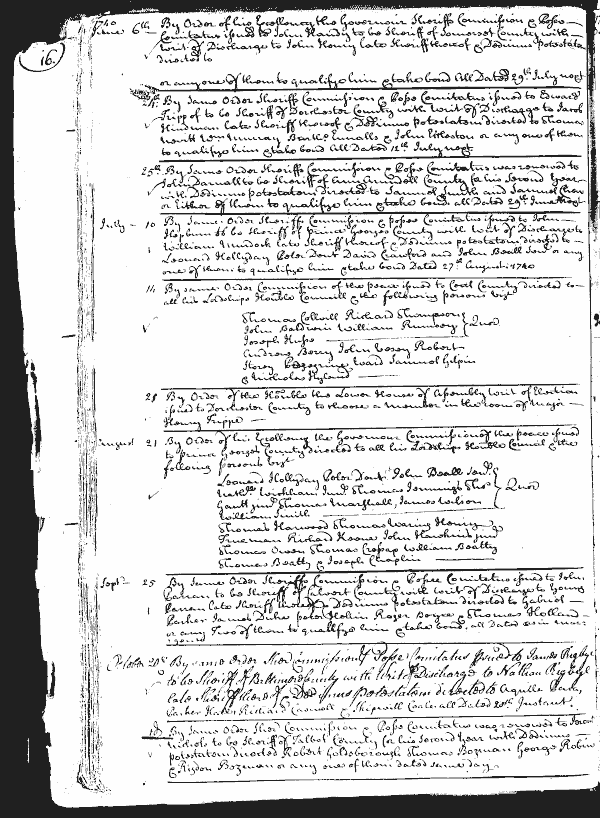 16.
1740
June 6th By Order of his Excellency the Governour Sheriff Commission & Posse
Comitatus issued to John Handy to be Sheriff of Somerset County with
Writ of Discharge to John Henry late Sheriff thereof & Dedimus potestatem
directed to
or any one of them to qualify him & take bond All Dated 29th July next
By Same Order Sheriff Commission & Posse Comitatus issued to Edward
Tripp to be Sheriff of Dorchester County with Writ of Discharge to Jacob
Hindman late Sheriff thereof & Dedimus potestatem directed to Thomas
Wm Murray Bartho Ennalls & John Eccleston or any one of them
to qualify him & take bond All Dated 12th July next
25th By Same Order Sheriffs Commission & Posse Comitatus was renewed to
John Darnall to be Sheriff of Ann Arundell County his Second Year
with Dedimus potestatem directed to Samuel Smith and Samuel
or Either of them to qualify him & take bond all Dated 29th June
July 10 By Same Order Sheriffs Commission & Posse Comitatus issued to John
Hepburn to be Sheriff of Prince Georges County with Writ of Discharge to
William Murdock late Sheriff thereof & Dedimus potestatem directed to
Leonard Hollyday Peter Dent David Craufurd and John Beall Senr or any
one of them to qualify him & take bond Dated 27th August 1740
11 By same Order Commission of the peace issued to Cecil County directed to
all his Lordships Honble Councill & the following persons Vizt
Thomas Colvill Richard Thompson
John Baldwin William Rumsey } Quor
Joseph
Andrew Berry John Veazey Robert
Storey Peregrine Ward Samuel Gilpin
& Nicholas Hyland
21 By Order of the Honble the Lower House of Assembly Writ of Election
issued to Dorchester County to choose a Member in the room of Major
Henry Trippe
August 21 By Order of his Excellency the Governour Commission of the peace issued
to Prince Georges County directed to all his Lordships Honble Council & the
following persons Vizt
Leonard Hollyday Peter Dent John Beall Senr
Nathll Wickham Junr Thomas Jennings Thos
Gantt junr Thomas Marshall, James Wilson } Quor
William Smith
Thomas Harwood Thomas Waring Henry
Trueman Richard Keene John Hawkins jun
Thomas Owen Thomas Cresap William Beatty
Thomas Beatty & Joseph Chaplin
Septr 25 By Same Order Sheriffs Commission & Posse Comitatus issued to John
to be Sheriff of Calvert County with Writ of Discharge to Young
Parran late Sheriff thereof & Dedimus potestatem directed to Gabriel
Parker James Duke peter Hellen Roger Boyce & Thomas Holland
or any Two of them to qualify him & take bond, all dated
October 20th By same Order Sher Commission & Posse Comitatus Issued to James Rigbye
to be Sheriff of Baltimore County with Writ of Discharge to Nathan Rigbye
late Sheriff thereof & Dedimus potestatem directed to Aquilla
Parker Richard Caswell & Skipwith Coale all Dated 20th Instant.
By Same Order Sher Commission & Posse Comitatus was renewed to
Nichols to be Sheriff of Talbot County for his Second Year with Dedimus
potestatem directed Robert Goldsborough Thomas Bozman George Robins
& Risdon Bozeman or any one of them dated same day